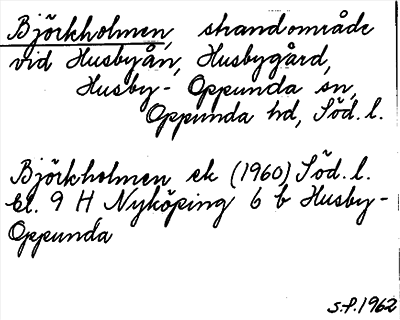 Björkholmen, strandområde
vid Husbyån, Husbygård,
Husby-Oppunda sn,
Oppunda hd, Söd. l.
Björkholmen ek (1960) Söd. l.
bl. 9 H Nyköping 6 b Husby-
Oppunda
S.F. 1962